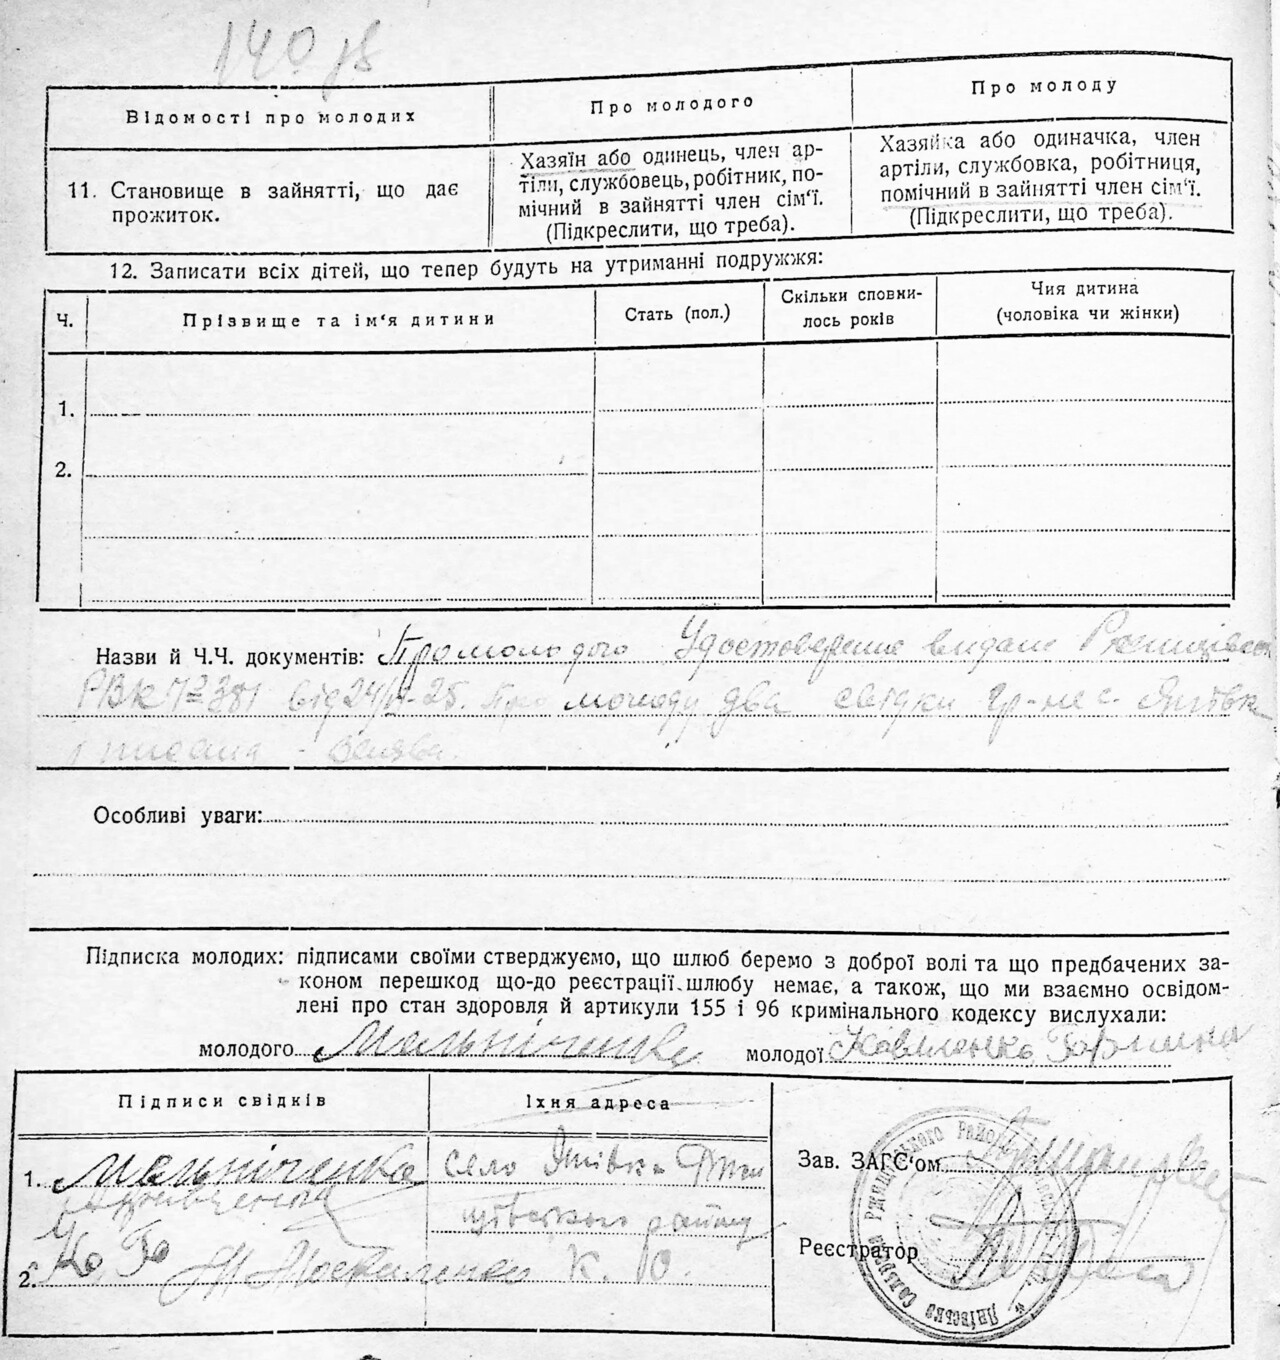 140
Відомості про молодих
Про молодого
Про молоду
11. Становище в зайнятті, що дає
прожиток.
Хазяїн або одинець, член ар-
тіли, службовець, робітник, по-
мічний в зайнятті член сім'ї.
(Підкреслити, що треба).
Хазяйка або одиначка, член
артіли, службовка, робітниця,
помічний в зайнятті член сім'ї.
(Підкреслити, що треба).
12. Записати всіх дітей, що тепер будуть на утриманні подружжя:
Ч.
Прізвище та ім'я дитини
Стать (пол.)
Скільки сповни-
лось років
Чия дитина
(чоловіка чи жінки)
1.
2.
Назви й Ч.Ч. документів: Про молодого Удостоверение видане
РВК № 381 від 24/ -25. Про молоду два свідки гр-не с.
Особливі уваги:
Підписка молодих: підписами своїми стверджуємо, що шлюб беремо з доброї волі та що предбачених за-
коном перешкод що-до реєстрації шлюбу немає, а також, що ми взаємно освідом-
лені про стан здоровля й артикули 155 і 96 кримінального кодексу вислухали:
молодого Мельніченко молодої Коваленко
Підписи свідків
Їхня адреса
1. Мельніченко
село
району
2. К. Ю.
Зав. ЗАГС'ом
Реєстратор